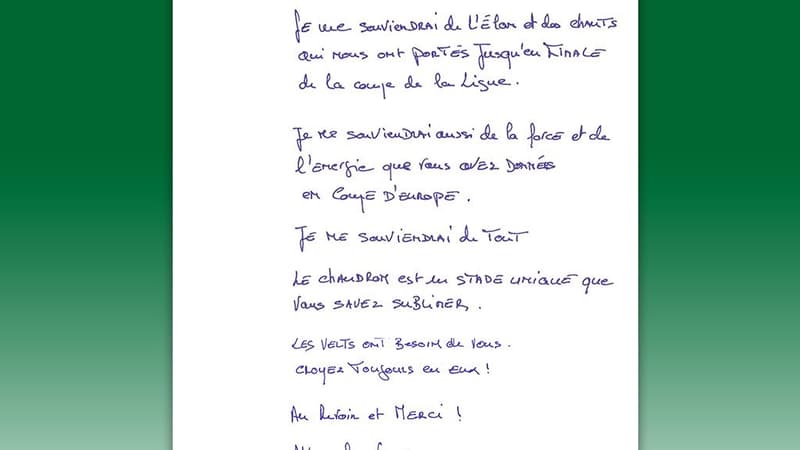 Je me souviendrai de l'Élan et des chants
qui nous ont portés jusqu'en Finale
de la coupe de la Ligue.
Je me souviendrai aussi de la force et de
l'energie que vous avez données
en Coupe d'Europe.
Je me souviendrai de Tout
Le Chaudron est un stade unique que
vous savez sublimer.
Les Verts ont besoin de vous.
Croyez Toujours en eux !
Au Revoir et Merci !